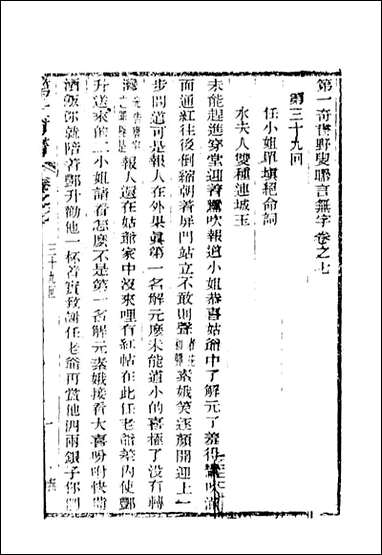 第一奇書野叟曝言無字卷之七
第三十九回
任小姐單填絕命詞
水夫人雙種連城玉
未能趕進穿堂迎着鸞吹報道小姐恭喜姑爺中了解元了羞得鸞吹滿
面通紅往後倒縮朝着屏門站立不敢則聲素娥笑逐顏開迎上一
步問道可是報人在外果眞第一名解元麽未能道小的喜極了沒有轉
報人還在姑爺家中沒來哩有紅帖在此任老爺差內使鄧
升送來的二小姐請看怎麽不是第一名解元素娥接看大喜吩咐快備
酒飯你就陪着鄧升勸他一杯着實致謝任老爺再賞他四兩銀子你們
三十九回